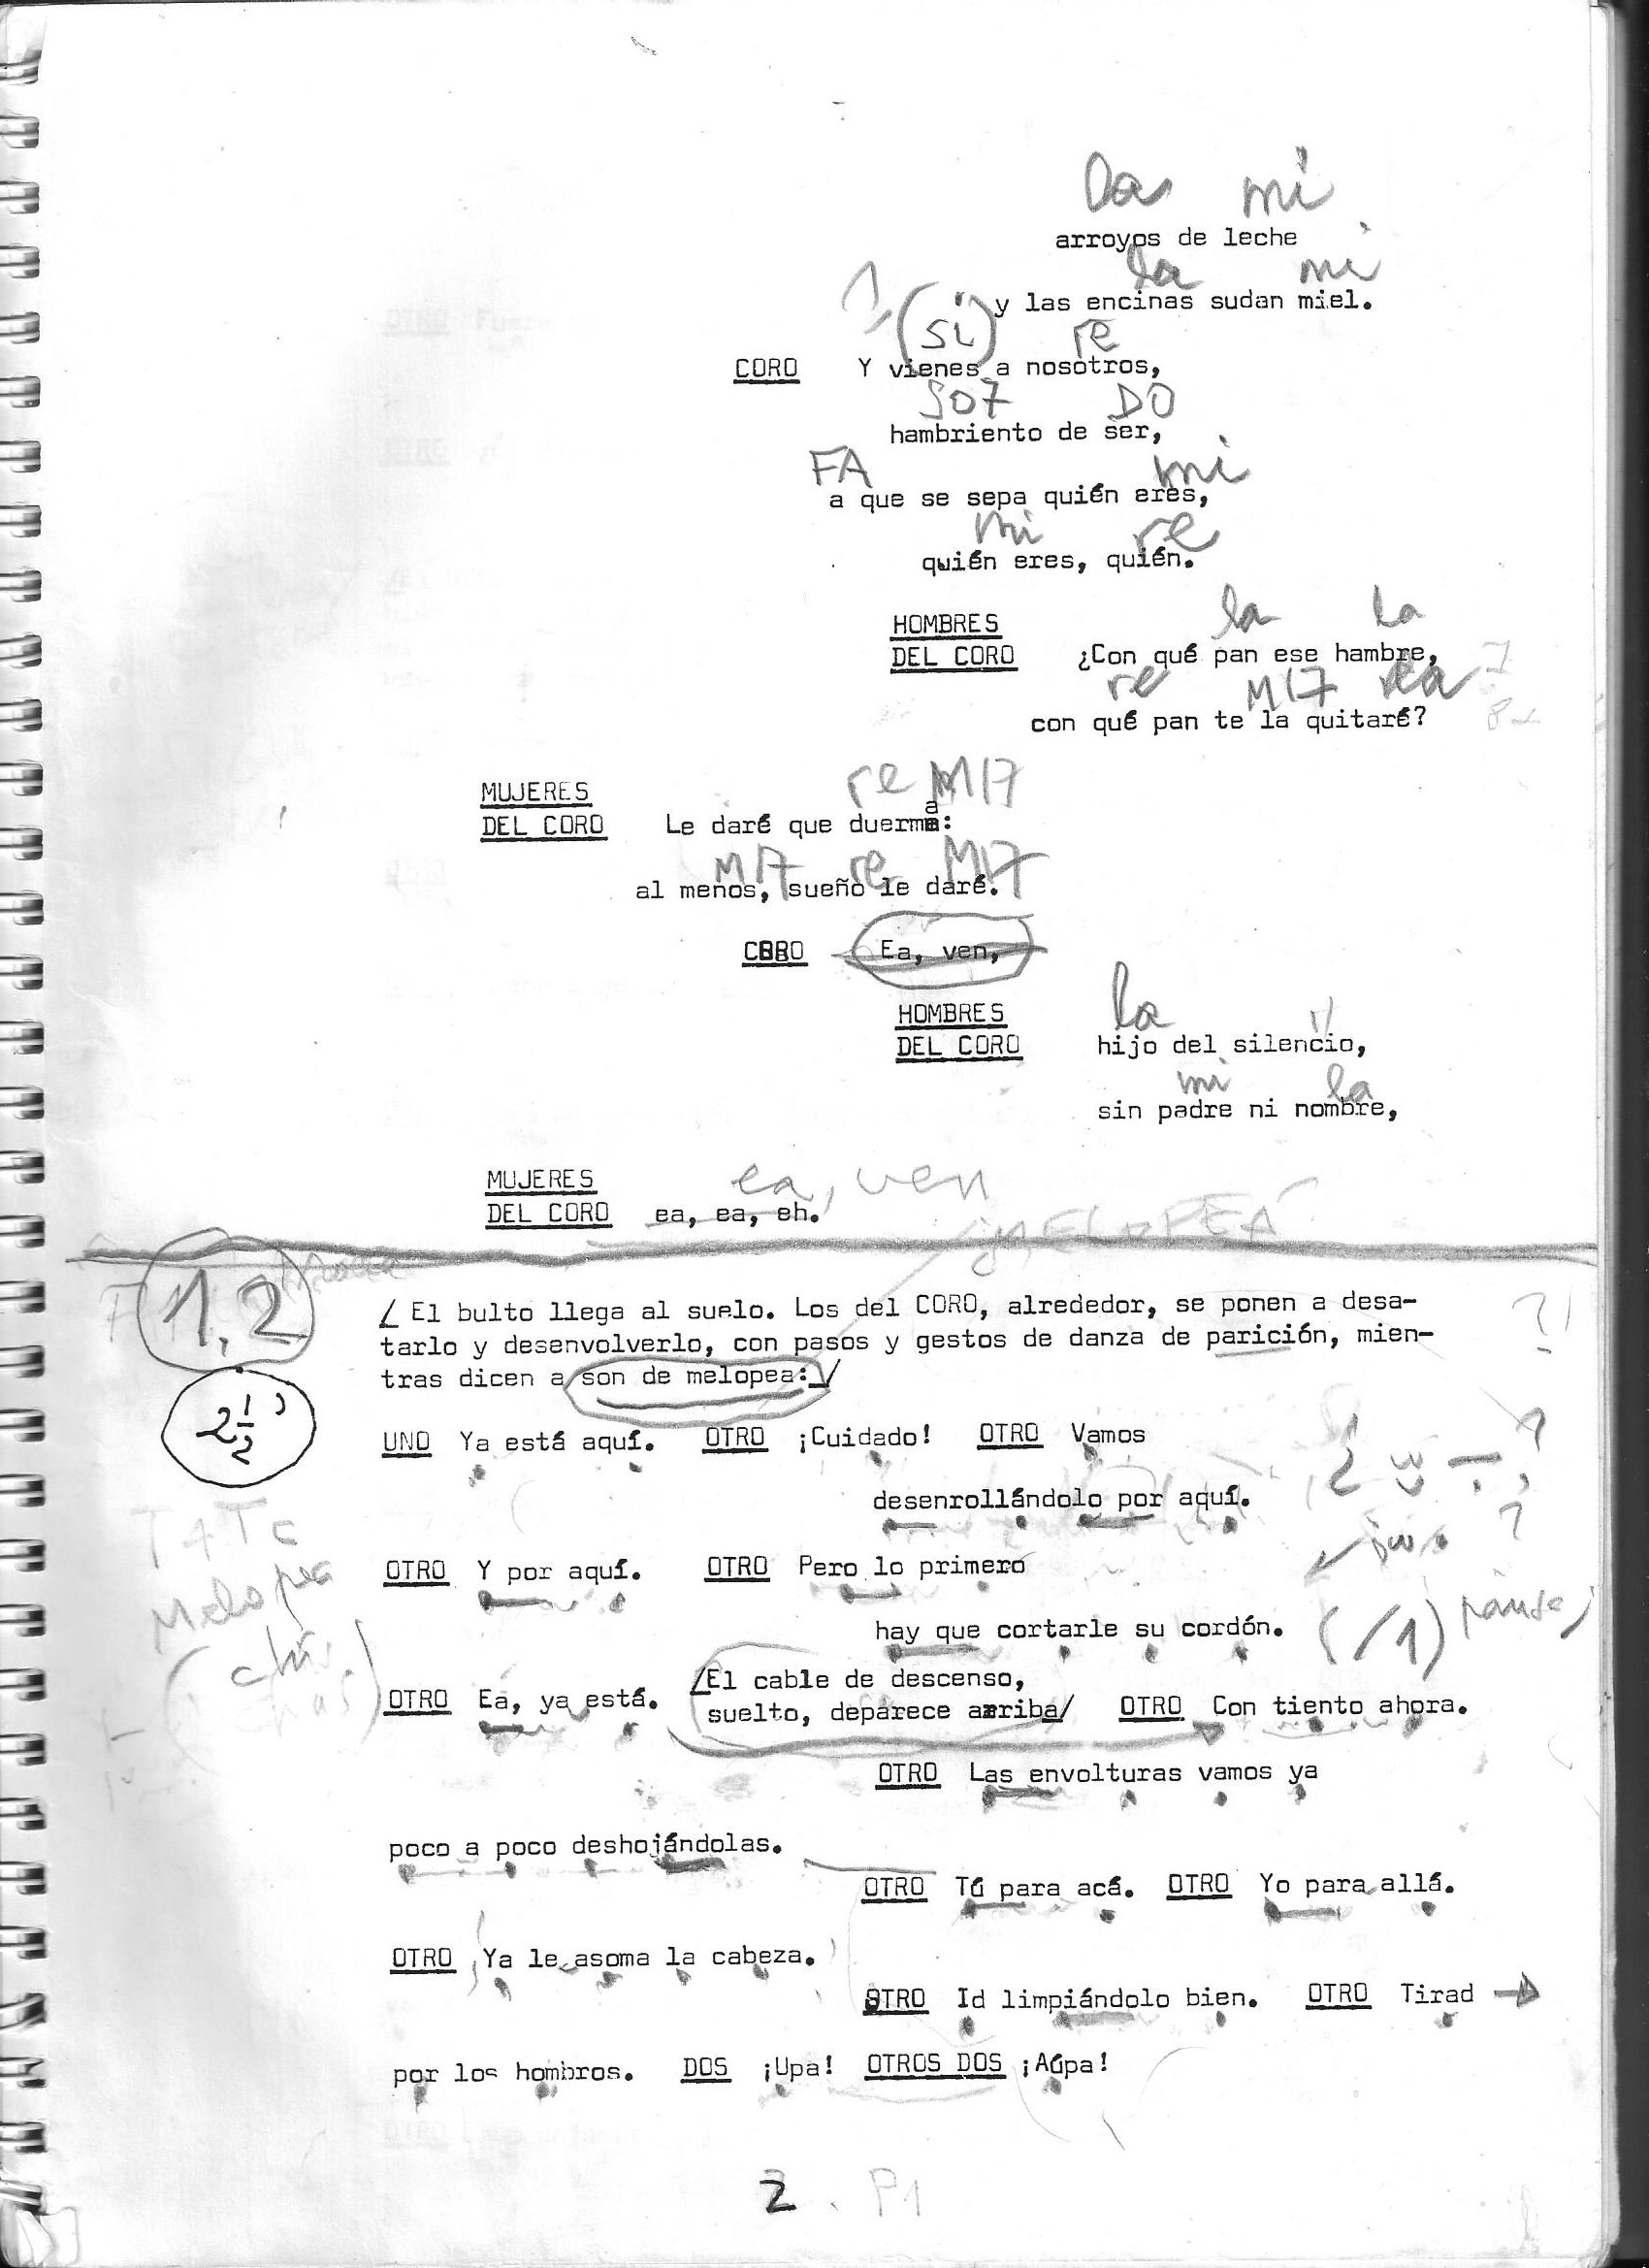 la mi
arroyos de leche
la mi
y las encinas sudan miel.
(si) re
CORO Y vienes a nosotros,
SO7 DO
hambriento de ser,
FA mi
a que se sepa quién eres,
mi re
quién eres, quién.
la la
HOMBRES
DEL CORO ¿Con qué pan ese hambre,
re MI7 la
con qué pan te la quitaré?
re MI7
MUJERES
DEL CORO Le daré que duerma:
MI7 re MI7
al menos, sueño le daré.
CORO Ea, ven,
HOMBRES
la
DEL CORO hijo del silencio,
mi la
sin padre ni nombre,
MUJERES
ea, ven
DEL CORO ea, ea, eh.
¡MELOPEA
1,2
/ El bulto llega al suelo. Los del CORO, alrededor, se ponen a desa-
tarlo y desenvolverlo, con pasos y gestos de danza de parición, mien-
tras dicen a son de melopea:/
2 1/2 '
UNO Ya está aquí. OTRO ¡Cuidado! OTRO Vamos
desenrollándolo por aquí.
Melopea
OTRO Y por aquí. OTRO Pero lo primero
hay que cortarle su cordón. (/1) pausa
/El cable de descenso,
OTRO Ea, ya está. suelto, deparece arriba/ OTRO Con tiento ahora.
OTRO Las envolturas vamos ya
poco a poco deshojándolas.
OTRO Tú para acá. OTRO Yo para allá.
OTRO Ya le asoma la cabeza.
OTRO Id limpiándolo bien. OTRO Tirad
por los hombros. DOS ¡Upa! OTROS DOS ¡Aúpa!
2 P1